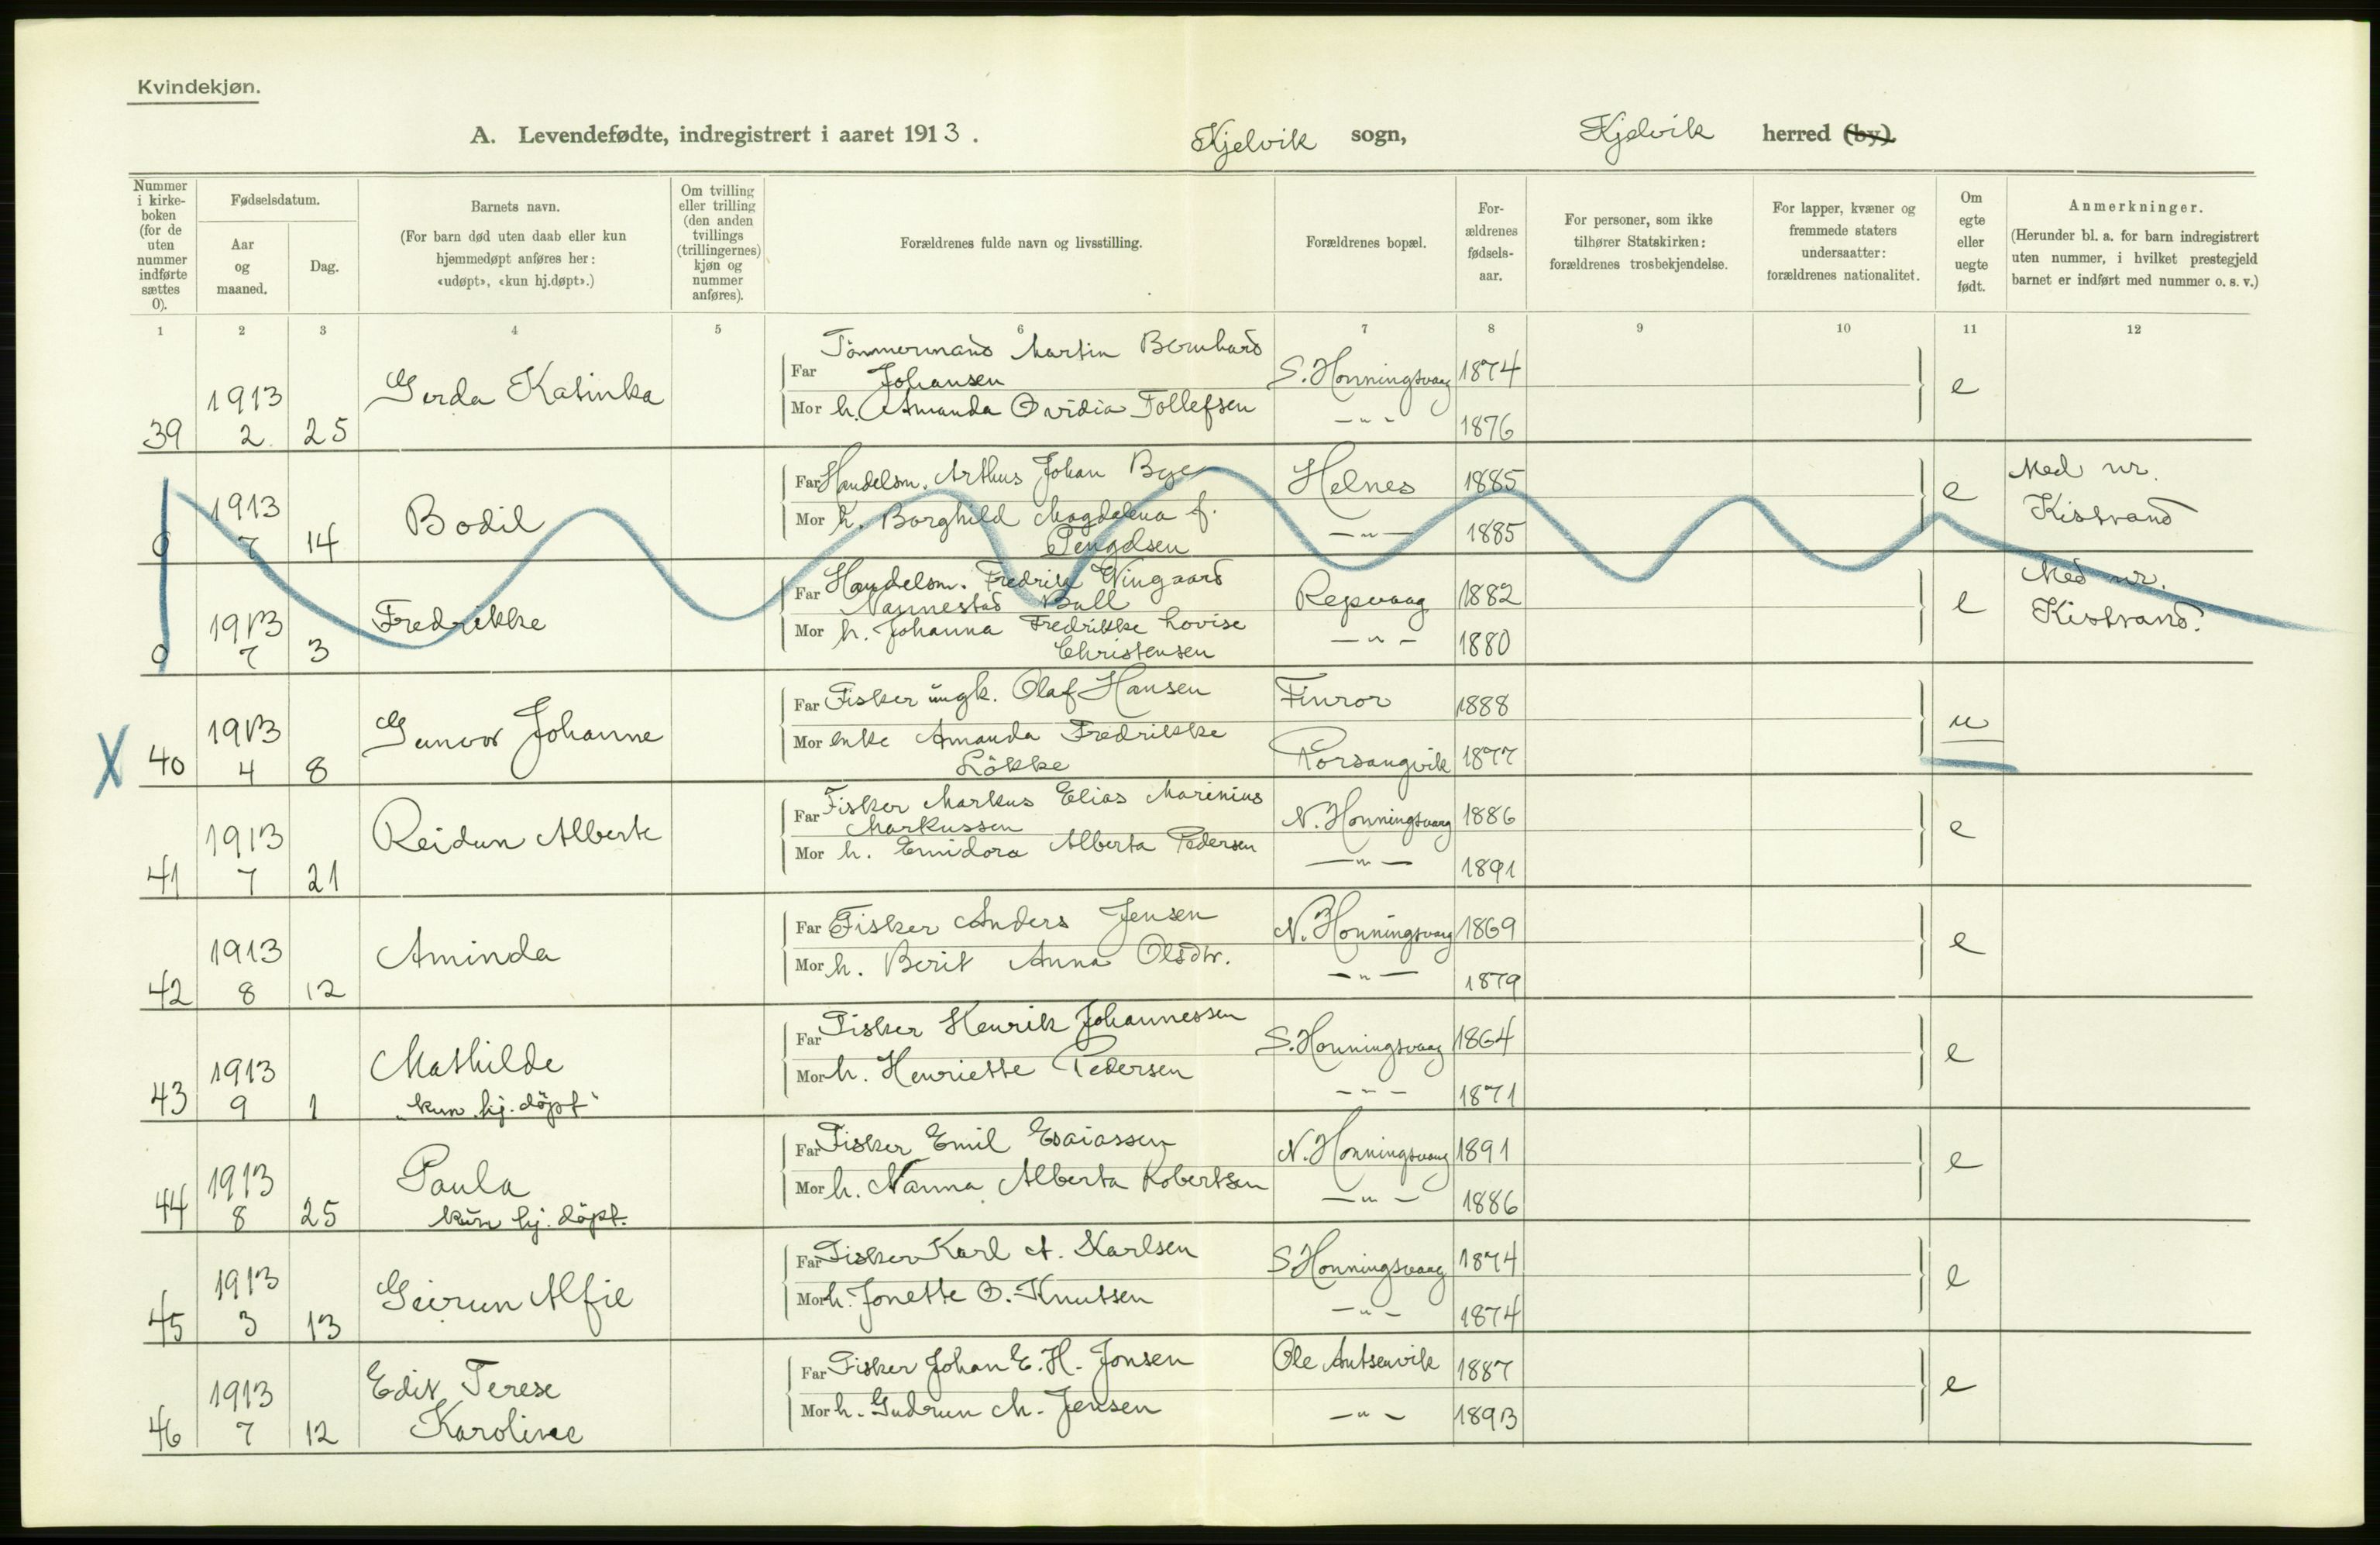 Kvindekjøn.
A. Levendefødte, indregistrert i aaret 1913. Kjelvik sogn, Kjelvik herred (by).
Nummer i kirke-boken (for de uten nummer indførte sættes 0).
Fødselsdatum.
Aar og maaned.
Dag.
Barnets navn.
(For barn død uten daab eller kun hjemmedøpt anføres her: «udøpt», «kun hj.døpt».)
Om tvilling eller trilling (den anden tvillings (trillingernes) kjøn og nummer anføres).
Forældrenes fulde navn og livsstilling.
Forældrenes bopæl.
For-ældrenes fødsels-aar.
For personer, som ikke tilhører Statskirken: forældrenes trosbekjendelse.
For lapper, kvæner og fremmede staters undersaatter: forældrenes nationalitet.
Om egte eller uegte født.
Anmerkninger.
(Herunder bl. a. for barn indregistrert uten nummer, i hvilket prestegjeld barnet er indført med nummer o. s. v.)
1 2 3 4 5 6 7 8 9 10 11 12
39 1913 2. 25 Gerda Katinka
Far Tömmermand Martin Bernhard Johansen S. Honningsvaag 1874 e
Mor h. Amanda Ovidia Tollefsen -"- 1876
0 1913 7 14 Bodil
Far Handelsm. Arthus Johan Bye Helnes 1885 e Med nr. Kistrand
Mor h. Borghild Magdalena f. Pengdsen -"- 1885
0 1913 7 3 Fredrikke
Far Handelsm. Fredrik Wingaard Nannestad Bull Repvaag 1882 e Med nr. Kistrand.
Mor h. Johanna Fredrikke Lovise Christensen -"- 1880
X 40 1913 4 8 Gunvor Johanne
Far Fisker ungk. Olaf Hansen Finror 1888 u
Mor enke Amanda Fredrikke Lökke Porsangvik 1877
41 1913 7 21 Reidun Alberte
Far Fisker Markus Elias Marinius Markussen N. Honningsvaag 1886 e
Mor h. Emidora Alberta Pedersen -"- 1891
42 1913 8 12 Aminda
Far Fisker Anders Jensen N. Honningsvaag 1869 e
Mor h. Berit Anna Olsdtr. -"- 1879
43 1913 9 1 Mathilde "kun hj. döpt"
Far Fisker Henrik Johannessen S. Honningsvaag 1864 e
Mor h. Henriette Pedersen - - - 1871
44 1913 8 25 Paula kun hj. döpt.
Far Fisker Emil Esaiassen N. Honningsvaag 1891 e
Mor h. Nanna Alberta Robertsen -"- 1886
45 1913 3 13 Geirun Alfie
Far Fisker Karl A. Karlsen S Honningsvaag 1874 e
Mor h. Jonette O. Knutsen -"- 1874
46 1913 7 12 Edit Terese Karoline
Far Fisker Johan E. H. Jonsen Ole Antsenvik 1887 e
Mor h. Gudrun M. Jensen -"- 1893